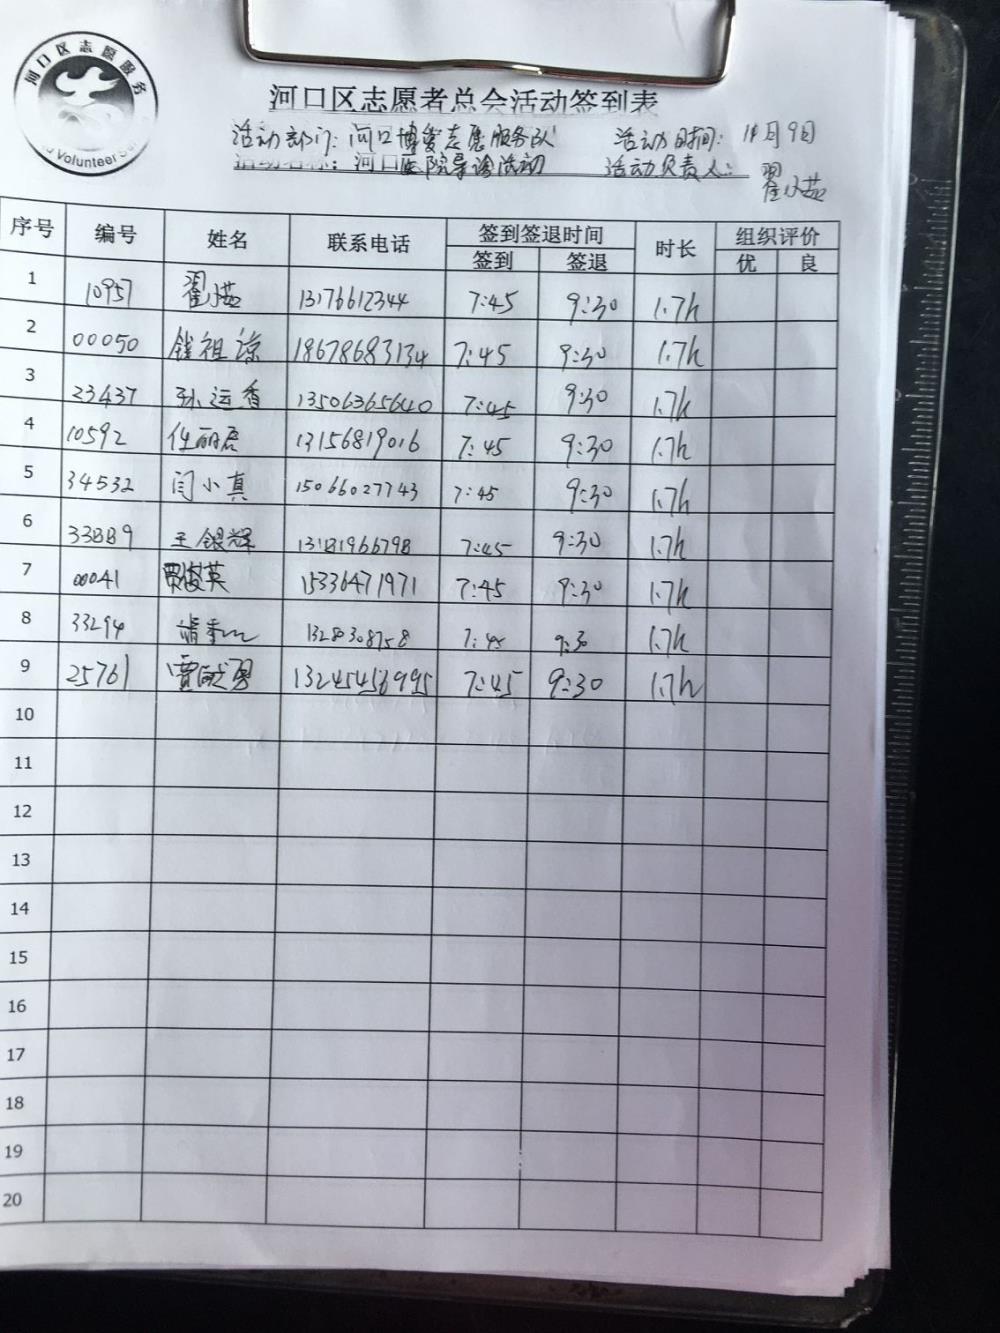 河口区志愿服务
Volunteer Ser
河口区志愿者总会活动签到表
活动部门：河口博爱志愿服务队 活动时间：11月9日
活动名称：河口医院导诊活动 活动负责人：翟小茹
序号 编号 姓名 联系电话 签到签退时间 时长 组织评价
签到 签退 优 良
1 10957 翟小茹 13176612344 7:45 9:30 1.7h
2 00050 钱祖谅 18678683134 7:45 9:30 1.7h
3 23437 孙运香 13506365640 7:45 9:30 1.7h
4 10592 任丽君 13156819016 7:45 9:30 1.7h
5 34532 闫小真 15066027743 7:45 9:30 1.7h
6 33889 王银辉 13181966798 7:45 9:30 1.7h
7 00041 贾俊英 15336471971 7:45 9:30 1.7h
8 33294 7:45 9:30 1.7h
9 25761 13245456995 7:45 9:30 1.7h
10
11
12
13
14
15
16
17
18
19
20